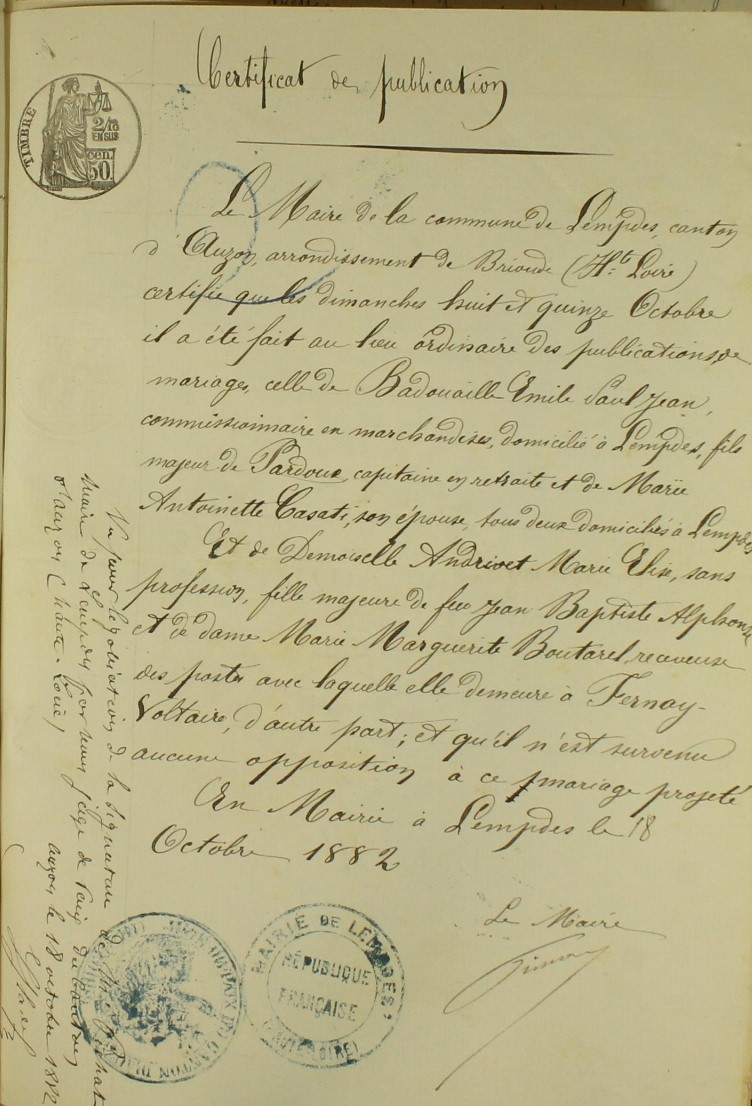 Certificat de publication
TIMBRE
2/10
EN SUS
50 cen.
Le Maire de la commune de Lempdes, canton
d'Auzon, arrondissement de Brioude (Hte Loire)
certifie que les dimanches huit et quinze Octobre
il a été fait au lieu ordinaire des publications de
mariages, celle de Badouaille Emile Paul Jean,
commissionnaire en marchandises, domicilié à Lempdes, fils
majeur de Pardoux, capitaine en retraite et de Marie
Antoinette Casati, son épouse, tous deux domiciliés à Lempdes
Et de Demoiselle Andrivet Marie Elise, sans
profession, fille majeure de feu Jean Baptiste Alphonse
et de dame Marie Marguerite Boutarel, receveuse
des postes avec laquelle elle demeure à Fernay-
Voltaire, d'autre part; et qu'il n'est survenu
aucune opposition à ce mariage projeté
En Mairie à Lempdes le 18
Octobre 1882
Le Maire
MAIRIE DE LEMPDES
RÉPUBLIQUE
FRANÇAISE
(HAUTE-LOIRE)
Vu pour légalisation de la signature de Mr
Maire de Lempdes par nous juge de paix du canton
d'Auzon (Haute-Loire)
Auzon le 18 octobre 1882